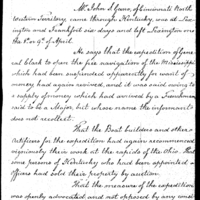 Mr John S. Gano, of Cincinnati North
western Territory, came through Kentucky, was at Lex
ington and Frankfort six days and left Lexington on
the 8th or 9th of April.
He says that the expedition of Gene
ral Clark to open the free navigation of the Mississippi
which had been suspended apparently for want of
money had again revived, and it was said owing to
a supply of money which had arrived by a Frenchman
said to be a Major, but whose name the informant
does not recollect.
That the Boat builders and other
Artificers for the expedition had again recommenced
vigorously their work at the rapids of the Ohio. That
some persons of Kentucky who had been appointed
officers had sold their property by auction.
That the measure of the expedition
was openly advocated and not opposed by any